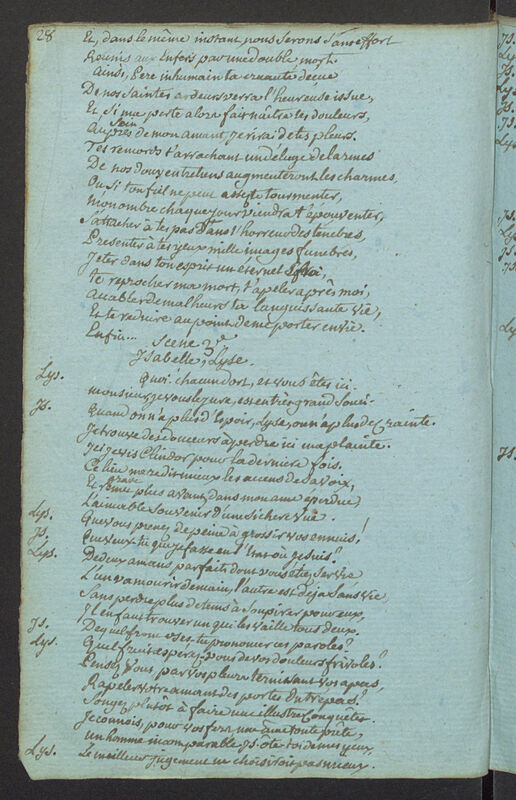 28
Et, dans le même instant nous serons sans effort
Reunis aux Enfers par une double mort.
Ainsi, Pere inhumain ta cruauté deçue
De nos saintes ardeurs verra l'heureuse issue,
Et, si ma perte alors fait naitre tes douleurs,
Auprès de mon amant, je rirai de tes pleurs.
Tes remords t'arrachant un deluge de larmes
De nos doux entretiens augmenteront les charmes,
Ou si ton fiel ne peut assez te tourmenter,
mon ombre chaque jour viendra t'épouventer,
S'attacher à tes pas dans l'horreur des tenebres,
Presenter à tes yeux mille images funebres,
Jeter dans ton esprit un éternel effroi,
te reprocher ma mort, t'apeler après moi,
Accabler de malheurs ta languissante vie,
Et te reduire au point de me porter envie.
Enfin...
Scene 3e
Isabelle, Lyse.
Lys. Quoi! chacun dort, et vous êtes ici.
monsieur, je vous le jure, est en très grand souci.
Is. Quand on n'a plus d'espoir, Lyse, on n'a plus de crainte.
Je trouve des douceurs à perdre ici ma plainte.
Ici je vis Clindor pour la derniere fois.
Ce lieu me redit mieux les accens de sa voix,
Et grave plus avant, dans mon ame éperdue,
L'aimable souvenir d'une si chere vue.
Lys. Que vous prenez de peine à grossir vos ennuis!
Is. Que veux-tu que je fasse en l'état où je suis?
Lys. De deux amans parfaits dont vous étiez servie
L'un va mourir demain, l'autre est déja sans vie
Sans perdre plus de tems à soupirer pour eux,
Il en faut trouver un qui les vaille tous deux.
Is. De quel front oses-tu prononcer ces paroles?
Lys. Quel fruit espérez-vous de vos douleurs frivoles?
Pensez-vous par vos pleurs ternissant vos apas,
Rapeler votre amant des portes du trépas?
Songez plutôt à faire une illustre conquête.
Je connois, pour vos fers une ame toute prête,
un homme incomparable. Is. ôte-toi de mes yeux.
Lys. Le meilleur jugement ne choisiroit pas mieux.